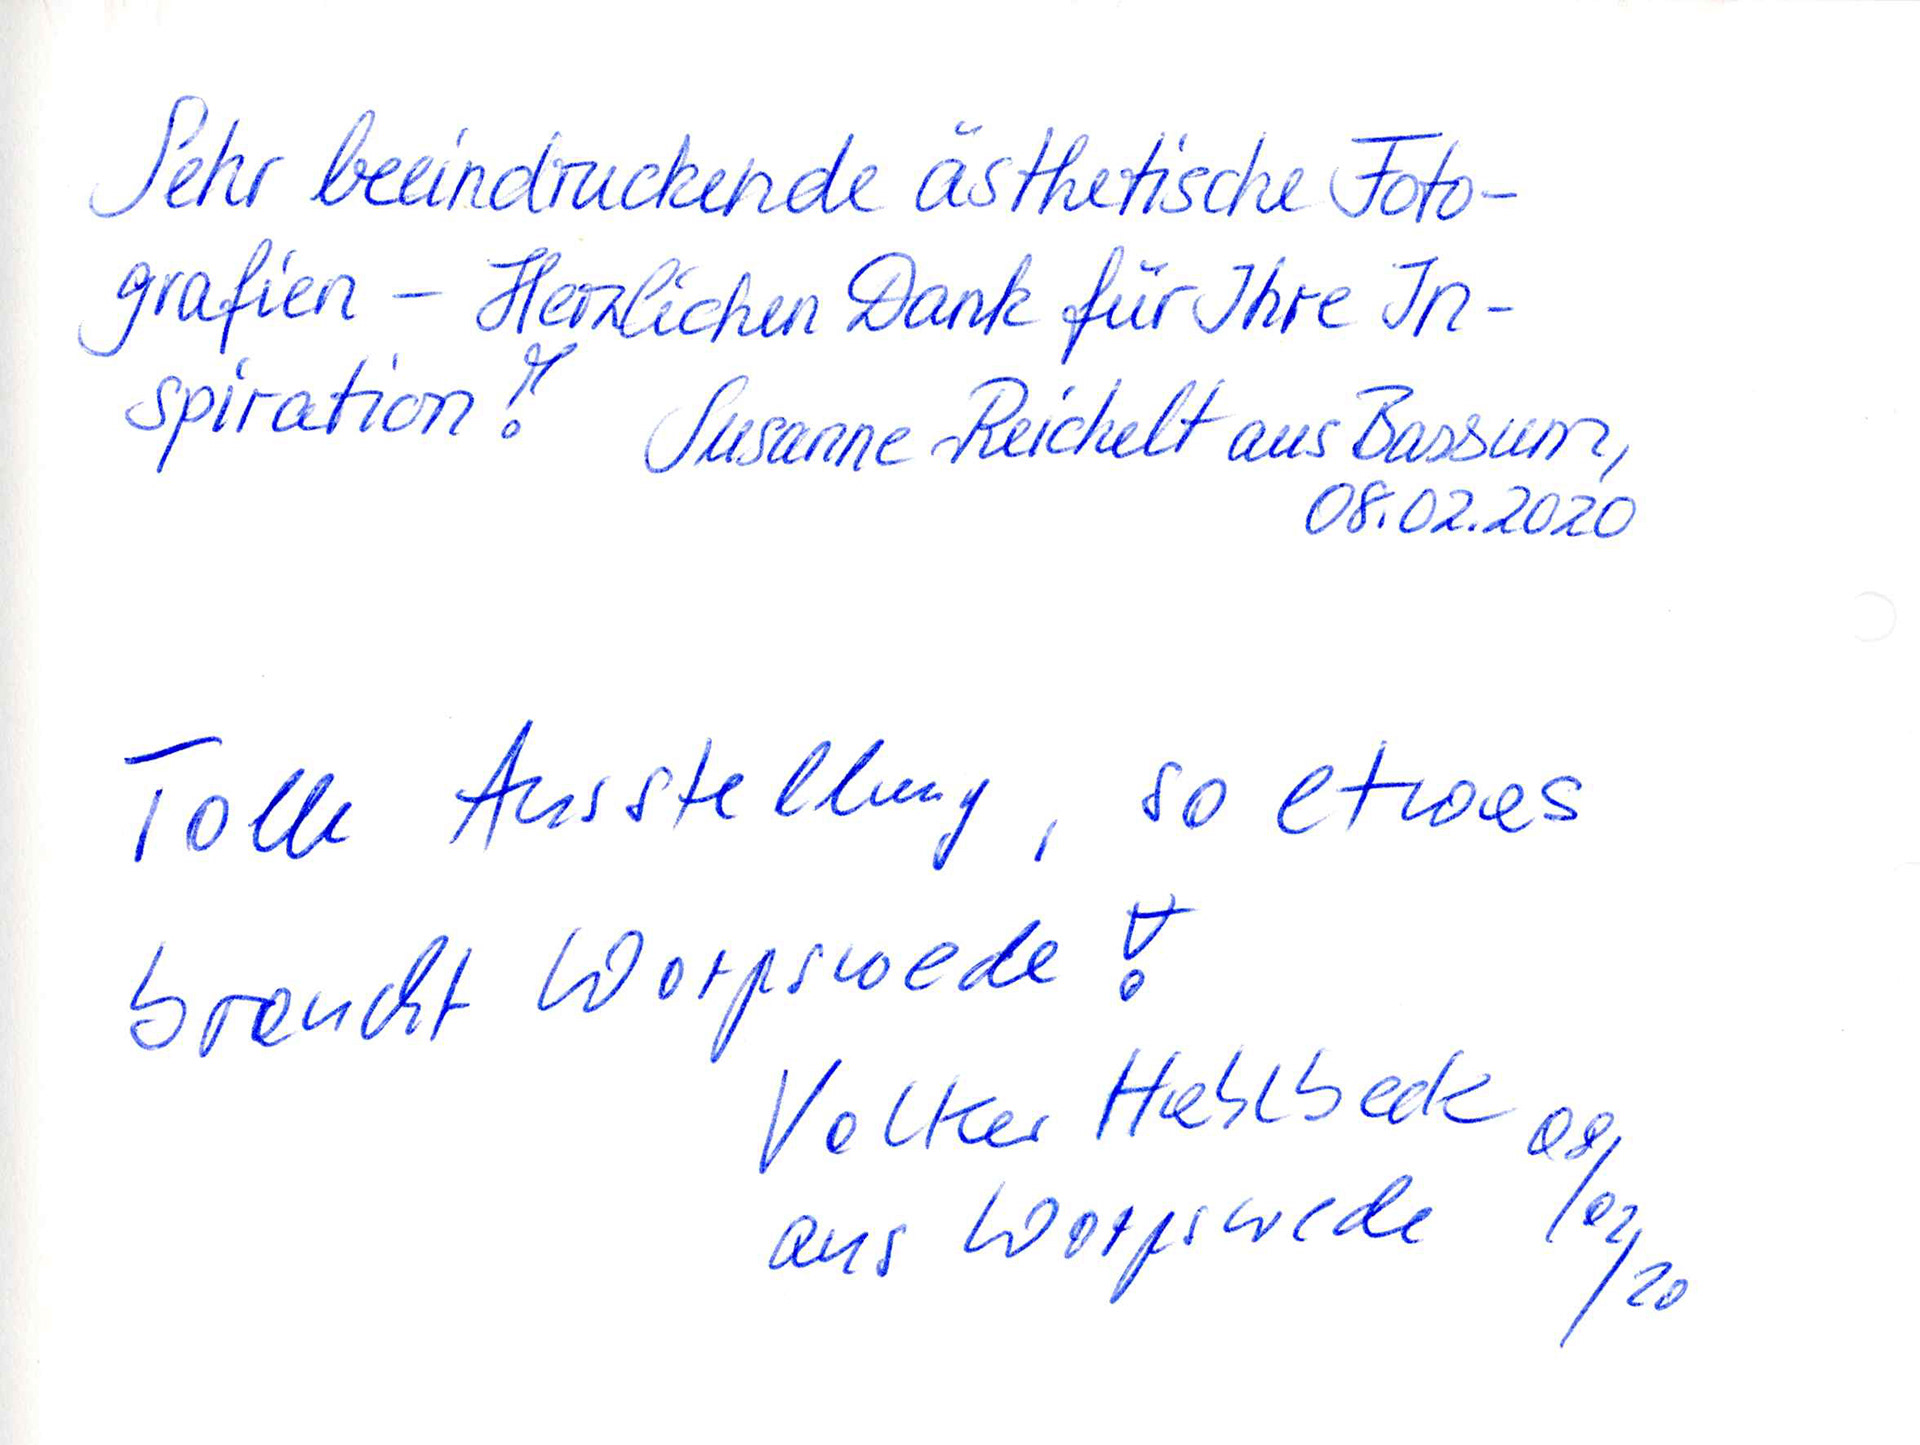 Sehr beeindruckende ästhetische Foto-
grafien – Herzlichen Dank für Ihre In-
spiration!
Susanne Reichelt aus Bassum,
08.02.2020
Tolle Ausstellung, so etwas
braucht Worpswede!
Volker
08/02/20
aus Worpswede